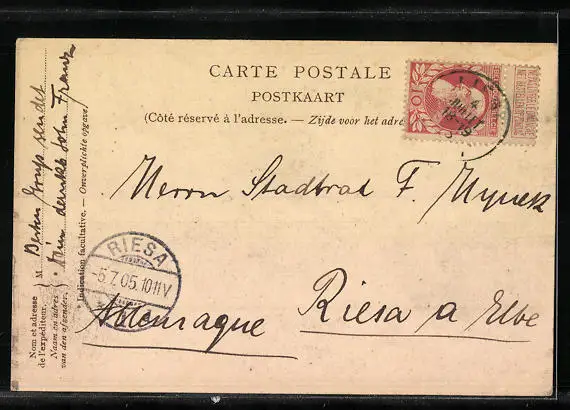 CARTE POSTALE
POSTKAART
(Côté réservé à l'adresse. — Zijde voor het adre
10
4
JUILLET
18-19
Herrn Stadtrat F.
RIESA
-5.7.05.10 11 V
Riesa a Elbe
Allemagne
Nom et adresse
de l'expéditeur.
Naam en adres
van den afzender.
M
sendet
John Franz
Indication facultative. — Onverplichte opgave.